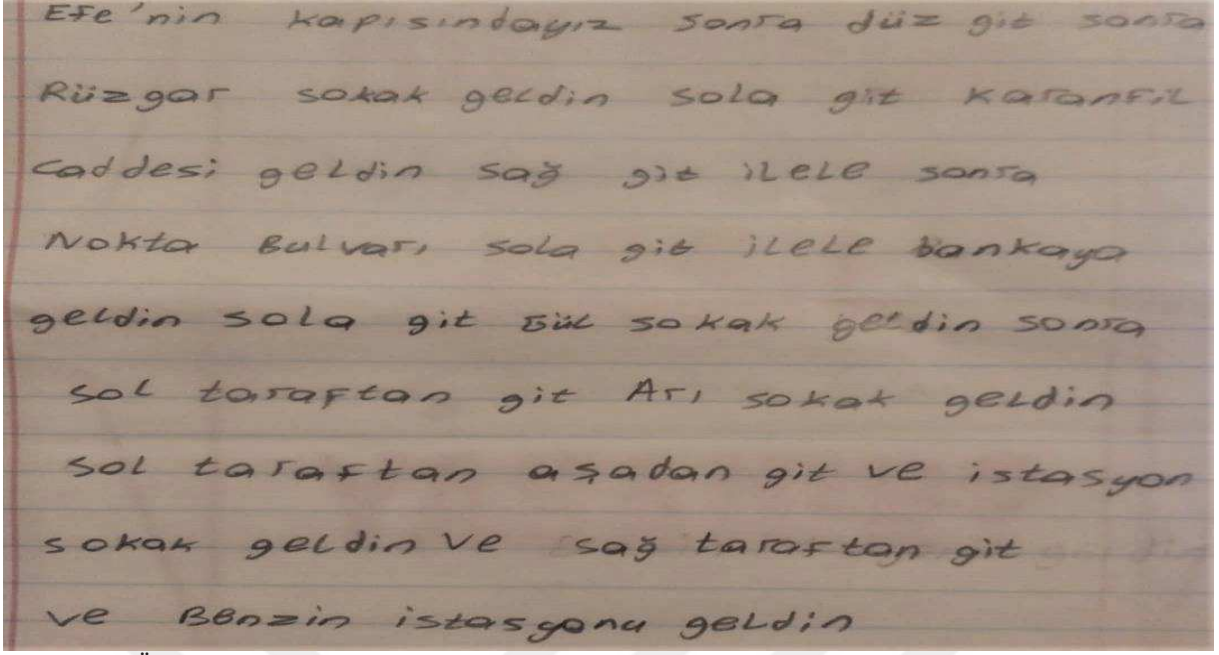 Efe'nin kapısındayız sonra düz git sonra
Rüzgar sokak geldin sola git Karanfil
caddesi geldin sağ git ilele sonra
Nokta Bulvarı sola git ilele bankaya
geldin sola git Gül sokak geldin sonra
sol taraftan git Arı sokak geldin
sol taraftan aşadan git ve istasyon
sokak geldin ve sağ taraftan git
ve Benzin istasyonu geldin